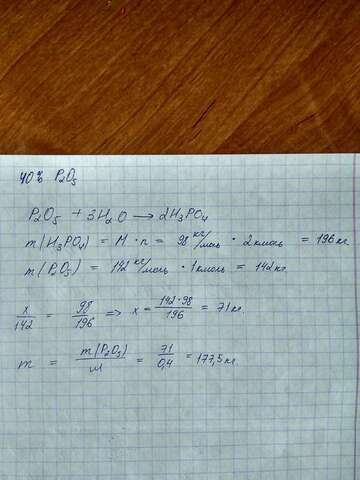 40% P₂O₅
P₂O₅ + 3H₂O → 2H₃PO₄
m(H₃PO₄) = M · n = 98 кг/моль · 2кмоль = 196 кг.
m(P₂O₅) = 142 кг/моль · 1кмоль = 142 кг.
x/142 = 98/196 => x = 142·98/196 = 71 кг.
m = m(P₂O₅)/ω = 71/0,4 = 177,5 кг.